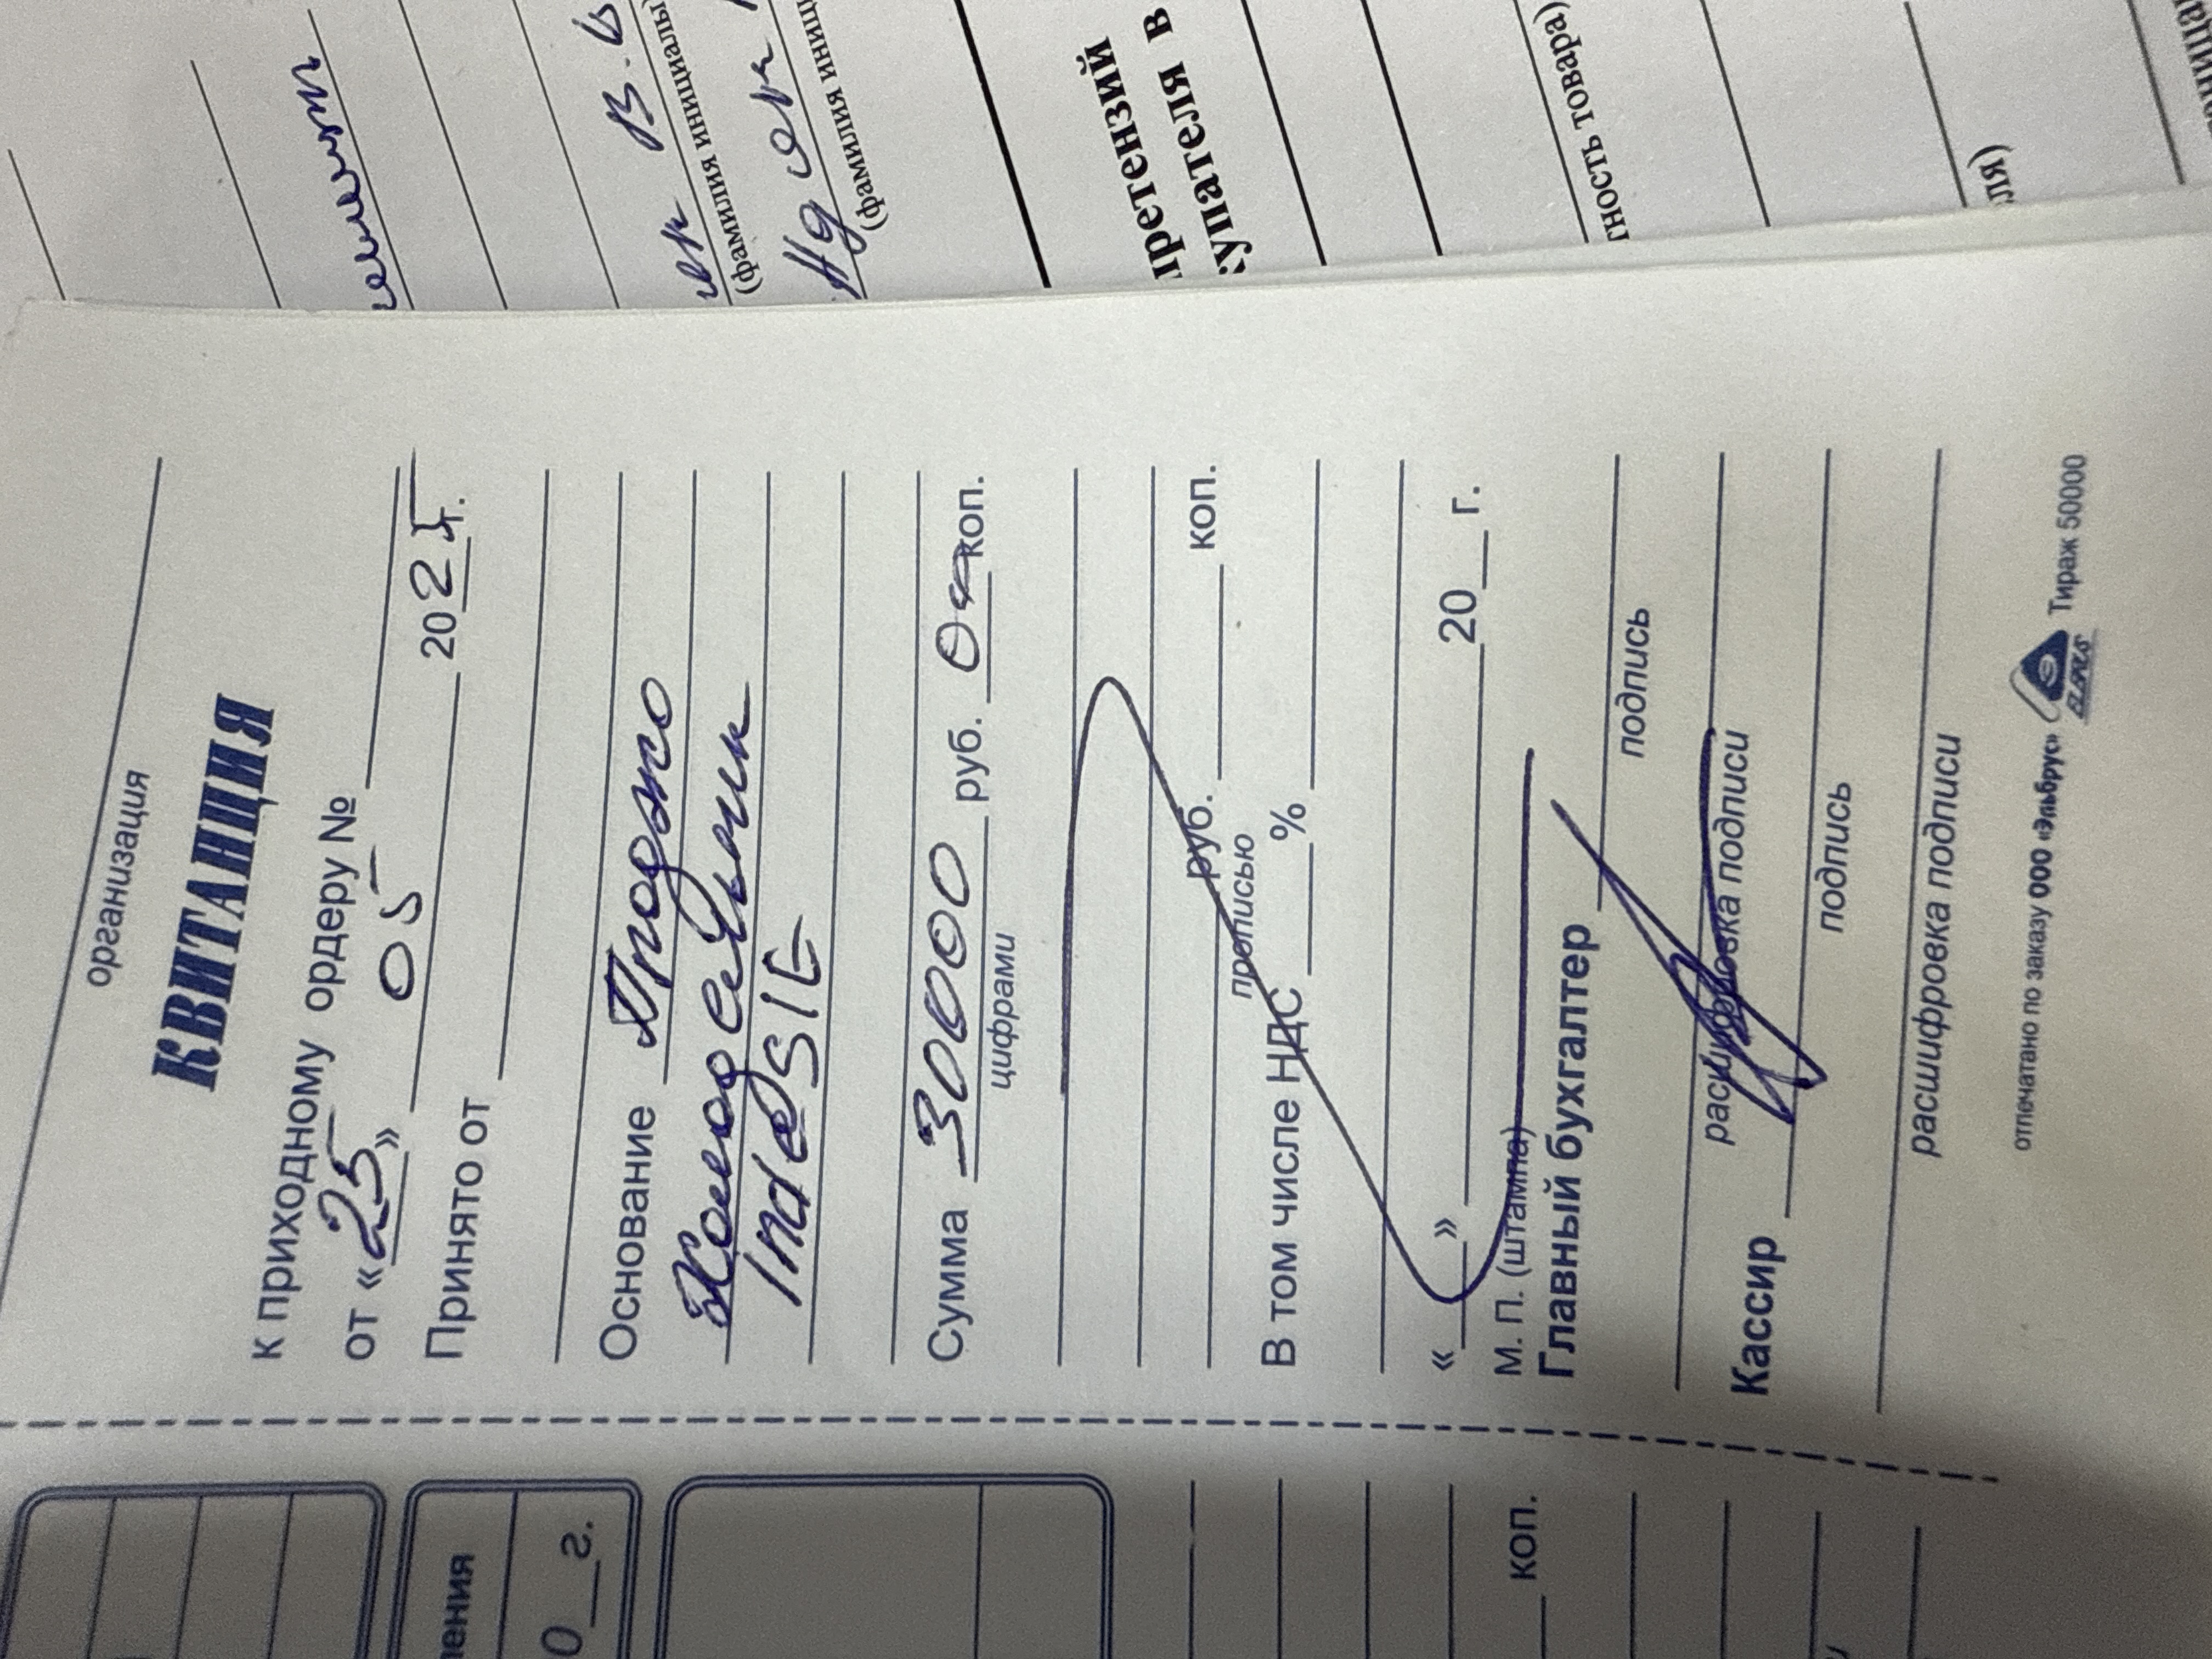 организация
КВИТАНЦИЯ
к приходному ордеру №
от «25» 05 2025 г.
Принято от
Основание Продано
Холодельник
IndeSIE
Сумма 30000 руб. 00 коп.
цифрами
руб. коп.
прописью
В том числе НДС %
« » 20 г.
М. П. (штампа)
Главный бухгалтер
подпись
расшифровка подписи
Кассир
подпись
расшифровка подписи
отпечатано по заказу ООО «Эльбрус» ELBRUS Тираж 50000
В.
(фамилия инициалы)
(фамилия иници
претензий
купателя в
ность товара)
ля)
ления
0 г.
коп.